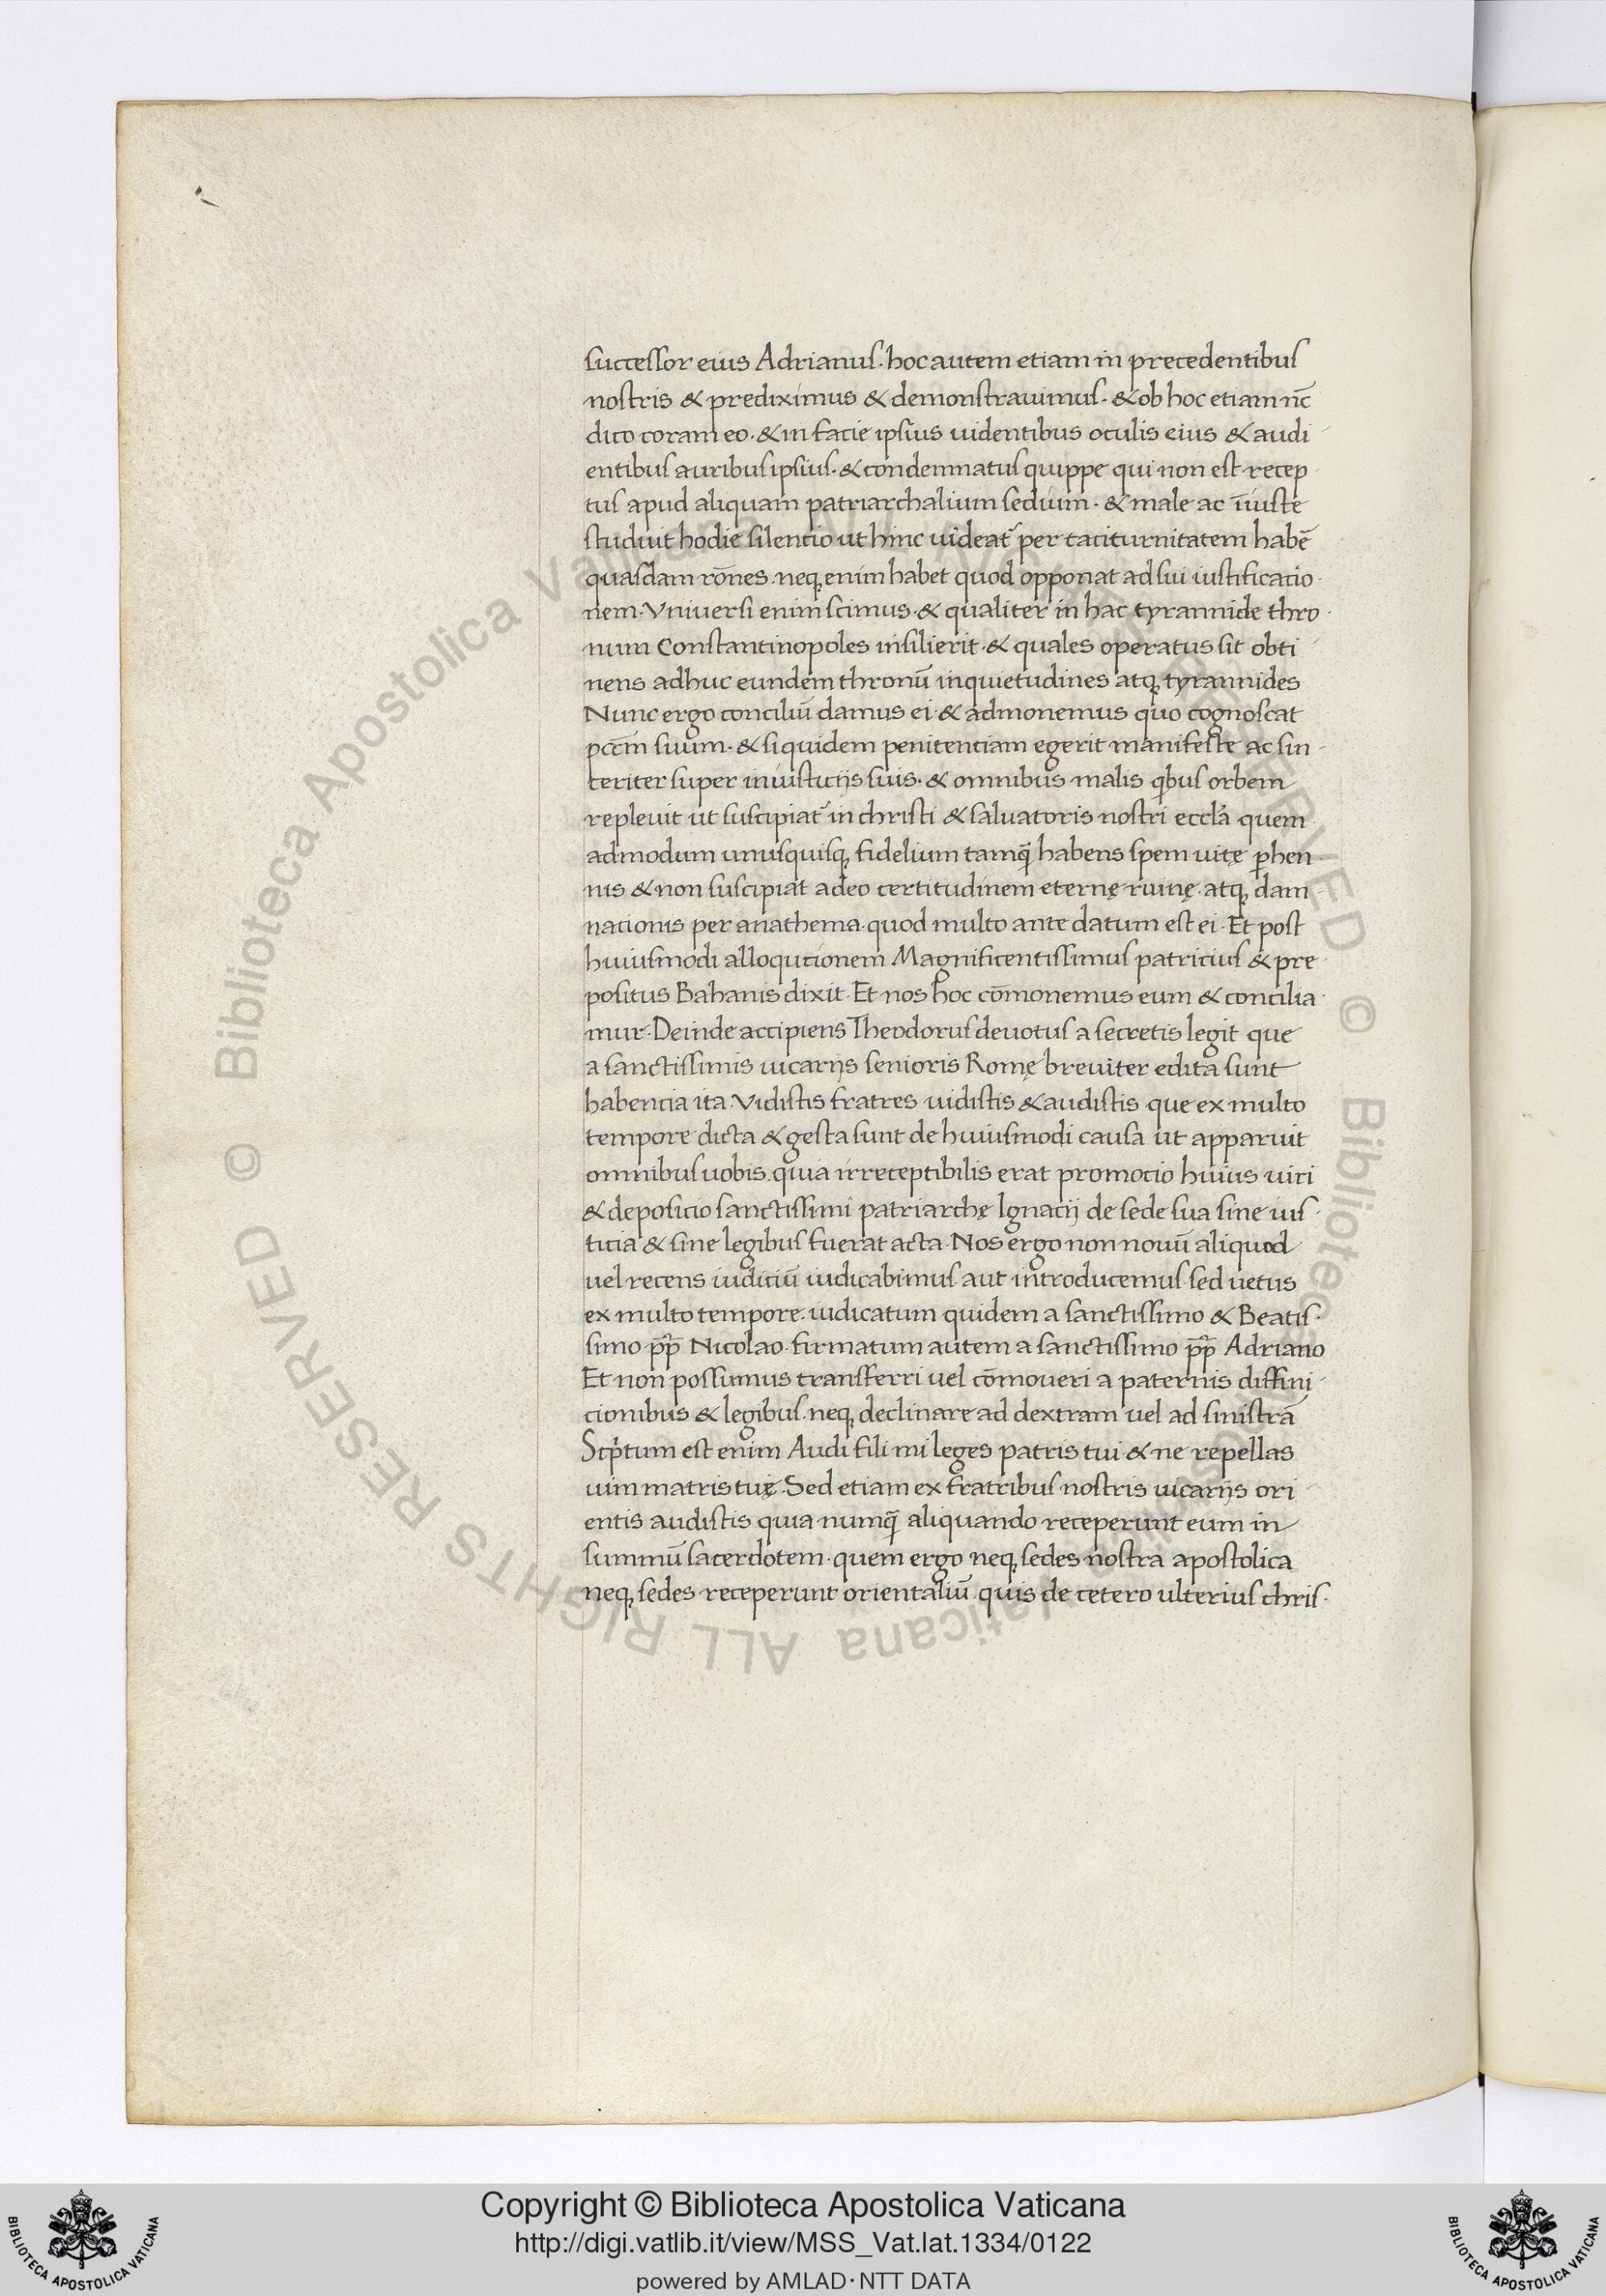 successor eius Adrianus. hoc autem etiam in precedentibus
nostris & prediximus & demonstrauimus. & ob hoc etiam nc̄
dico coram eo. & in facie ipsius uidentibus oculis eius & audi
entibus auribus ipsius. & condemnatus quippe qui non est recep
tus apud aliquam patriarchalium sedium. & male ac iīuste
studuit hodie silentio ut hinc uideat᷑ per taciturnitatem habē
quasdam rōnes. neq, enim habet quod opponat ad sui iustificatio
nem. Vniuersi enim scimus. & qualiter in hac tyrannide thro
num Constantinopoles insilierit. & quales operatus sit obti
nens adhuc eundem thronū inquietudines atq, tyrannides
Nunc ergo conciliū damus ei. & admonemus quo cognoscat
pccm̄ suum. & siquidem penitentiam egerit manifeste ac sin
ceriter super iniusticijs suis. & omnibus malis qͥbus orbem
repleuit ut suscipiat᷑ in christi & saluatoris nostri eccl̄a quem
admodum unusquisq, fidelium tamq̄ habens spem uitę ꝑhen
nis & non suscipiat adeo certitudinem eternę ruinę. atq, dam
nationis per anathema. quod multo ante datum est ei. Et post
huiusmodi alloqutionem Magnificentissimus patricius & pre
positus Bahanis dixit. Et nos hoc cōmonemus eum & concilia
mur. Deinde accipiens Theodorus deuotus a secretis legit que
a sanctissimis uicarijs senioris Romę breuiter edita sunt
habentia ita. Vidistis fratres uidistis & audistis que ex multo
tempore dicta & gesta sunt de huiusmodi causa ut apparuit
omnibus uobis. quia irreceptibilis erat promocio huius uiri
& deposicio sanctissimi patriarchę Ignacij de sede sua sine ius
ticia & sine legibus fuerat acta. Nos ergo non nouū aliquod
uel recens iudiciū iudicabimus aut introducemus sed uetus
ex multo tempore. iudicatum quidem a sanctissimo & Beatis
simo pp̄ Nicolao. firmatum autem a sanctissimo pp̄ Adriano
Et non possumus transferri uel cōmoueri a paternis diffini
cionibus & legibus. neq, declinare ad dextram uel ad sinistrā
Scͥptum est enim Audi fili mi leges patris tui & ne repellas
uim matris tuę. Sed etiam ex fratribus nostris uicarijs ori
entis audistis quia numq̄ aliquando receperunt eum in
summū sacerdotem. quem ergo neq, sedes nostra apostolica
neq, sedes receperunt orientaliū. quis de cetero ulterius chris
© Biblioteca Apostolica Vaticana ALL RIGHTS RESERVED © Biblioteca Apostolica Vaticana ALL RIGHTS RESERVED
Copyright © Biblioteca Apostolica Vaticana
http://digi.vatlib.it/view/MSS_Vat.lat.1334/0122
powered by AMLAD·NTT DATA
BIBLIOTECA APOSTOLICA VATICANA
BIBLIOTECA APOSTOLICA VATICANA